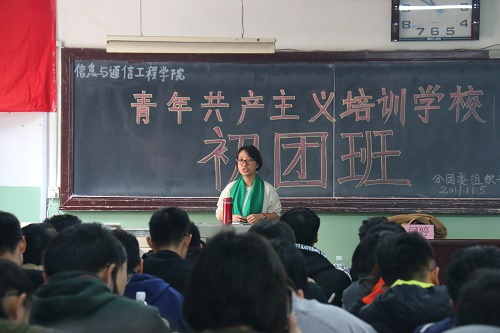 信息与通信工程学院
青年共产主义培训学校
初团班
分团委组织
2017.11.5